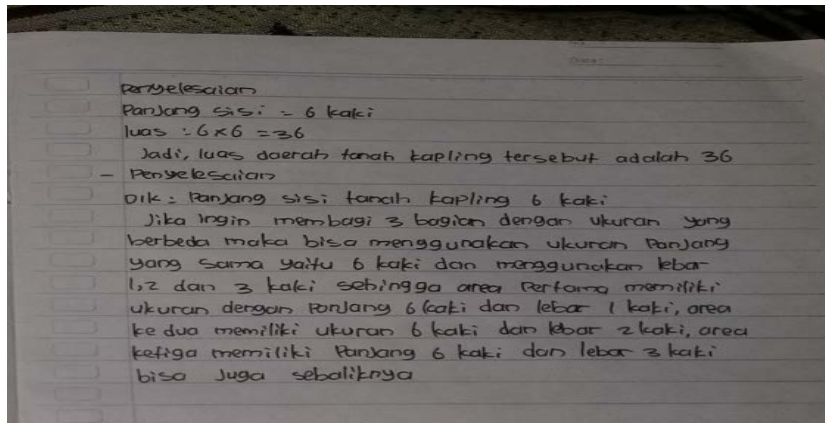 Penyelesaian
Panjang sisi = 6 kaki
luas : 6 x 6 = 36
Jadi, luas daerah tanah kapling tersebut adalah 36
- Penyelesaian
Dik : Panjang sisi tanah kapling 6 kaki
Jika ingin membagi 3 bagian dengan ukuran yang
berbeda maka bisa menggunakan ukuran Panjang
yang sama yaitu 6 kaki dan menggunakan lebar
1,2 dan 3 kaki sehingga area Pertama memiliki
ukuran dengan Panjang 6 kaki dan lebar 1 kaki, area
ke dua memiliki ukuran 6 kaki dan lebar 2 kaki, area
ketiga memiliki Panjang 6 kaki dan lebar 3 kaki
bisa Juga sebaliknya